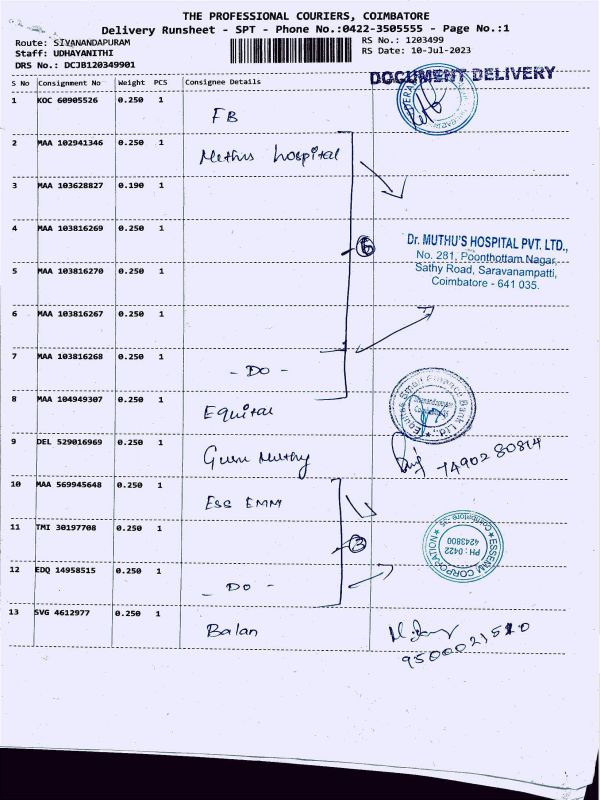 THE PROFESSIONAL COURIERS, COIMBATORE
Delivery Runsheet - SPT - Phone No.:0422-3505555 - Page No.:1
Route: SIVANANDAPURAM
Staff: UDHAYANITHI
DRS No.: DCJB120349901
RS No.: 1203499
RS Date: 10-Jul-2023
DOCUMENT DELIVERY
S No Consignment No Weight PCS Consignee Details
1 KOC 60905526 0.250 1
FB
2 MAA 102941346 0.250 1
Muthus hospital
3 MAA 103628827 0.190 1
4 MAA 103816269 0.250 1
6
Dr. MUTHU'S HOSPITAL PVT. LTD.,
No. 281, Poonthottam Nagar,
Sathy Road, Saravanampatti,
Coimbatore - 641 035.
5 MAA 103816270 0.250 1
6 MAA 103816267 0.250 1
7 MAA 103816268 0.250 1
- DO -
8 MAA 104949307 0.250 1
Equitas
Equitas Small Finance Bank Ltd.,
9 DEL 529016969 0.250 1
Guru Muthy
7490280814
10 MAA 569945648 0.250 1
ESS EMM
11 TMI 30197708 0.250 1
3
ESSEMM CORPORATION
PH : 0422
4243800
12 EDQ 14958515 0.250 1
- DO -
13 SVG 4612977 0.250 1
Balan
9500021510